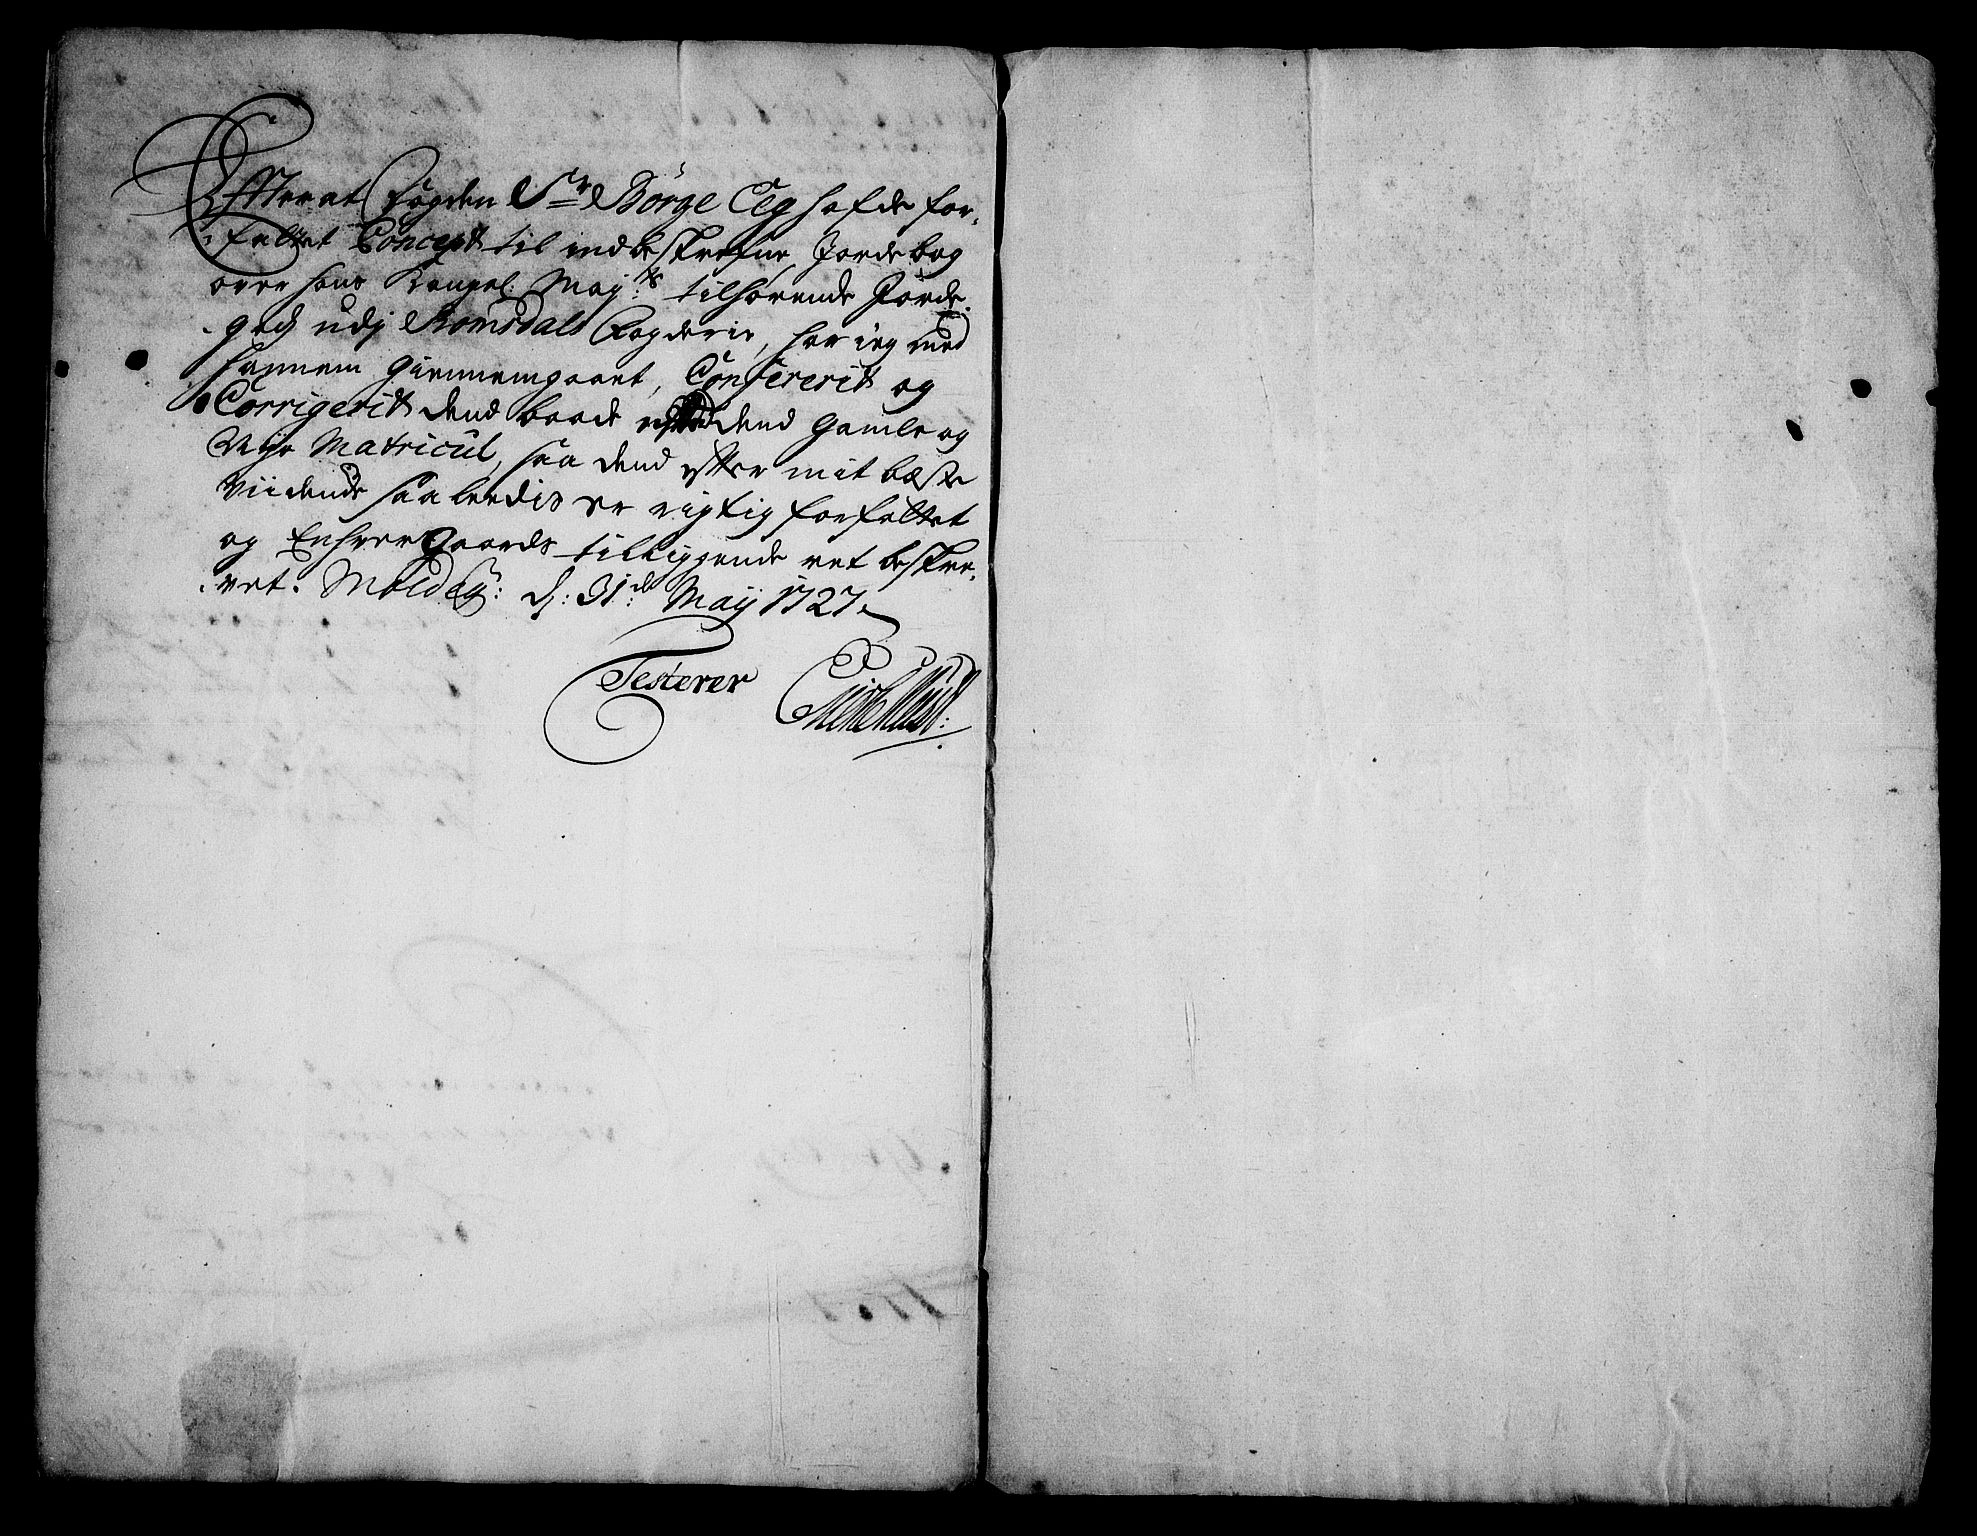 Effter at Fogden Sr Børge Eeg hafde for,
fattet Concept til indbeskrefne Jordebog
over hans Kongel: May:ts tilhørende Jorde,
godz udj Romsdals Fogderie, har ieg med
hannem Giennemgaaet, Confererit og
Corrigerit dend baade dend Gamle og
Nye Matricul, saa dend efter mit bæste
Viidende saaledis er rigtig forfattet
og Enhver Gaards tilliggende ret beskre,
vet. Moldøe: d: 31:de Maij 1727
Testerer